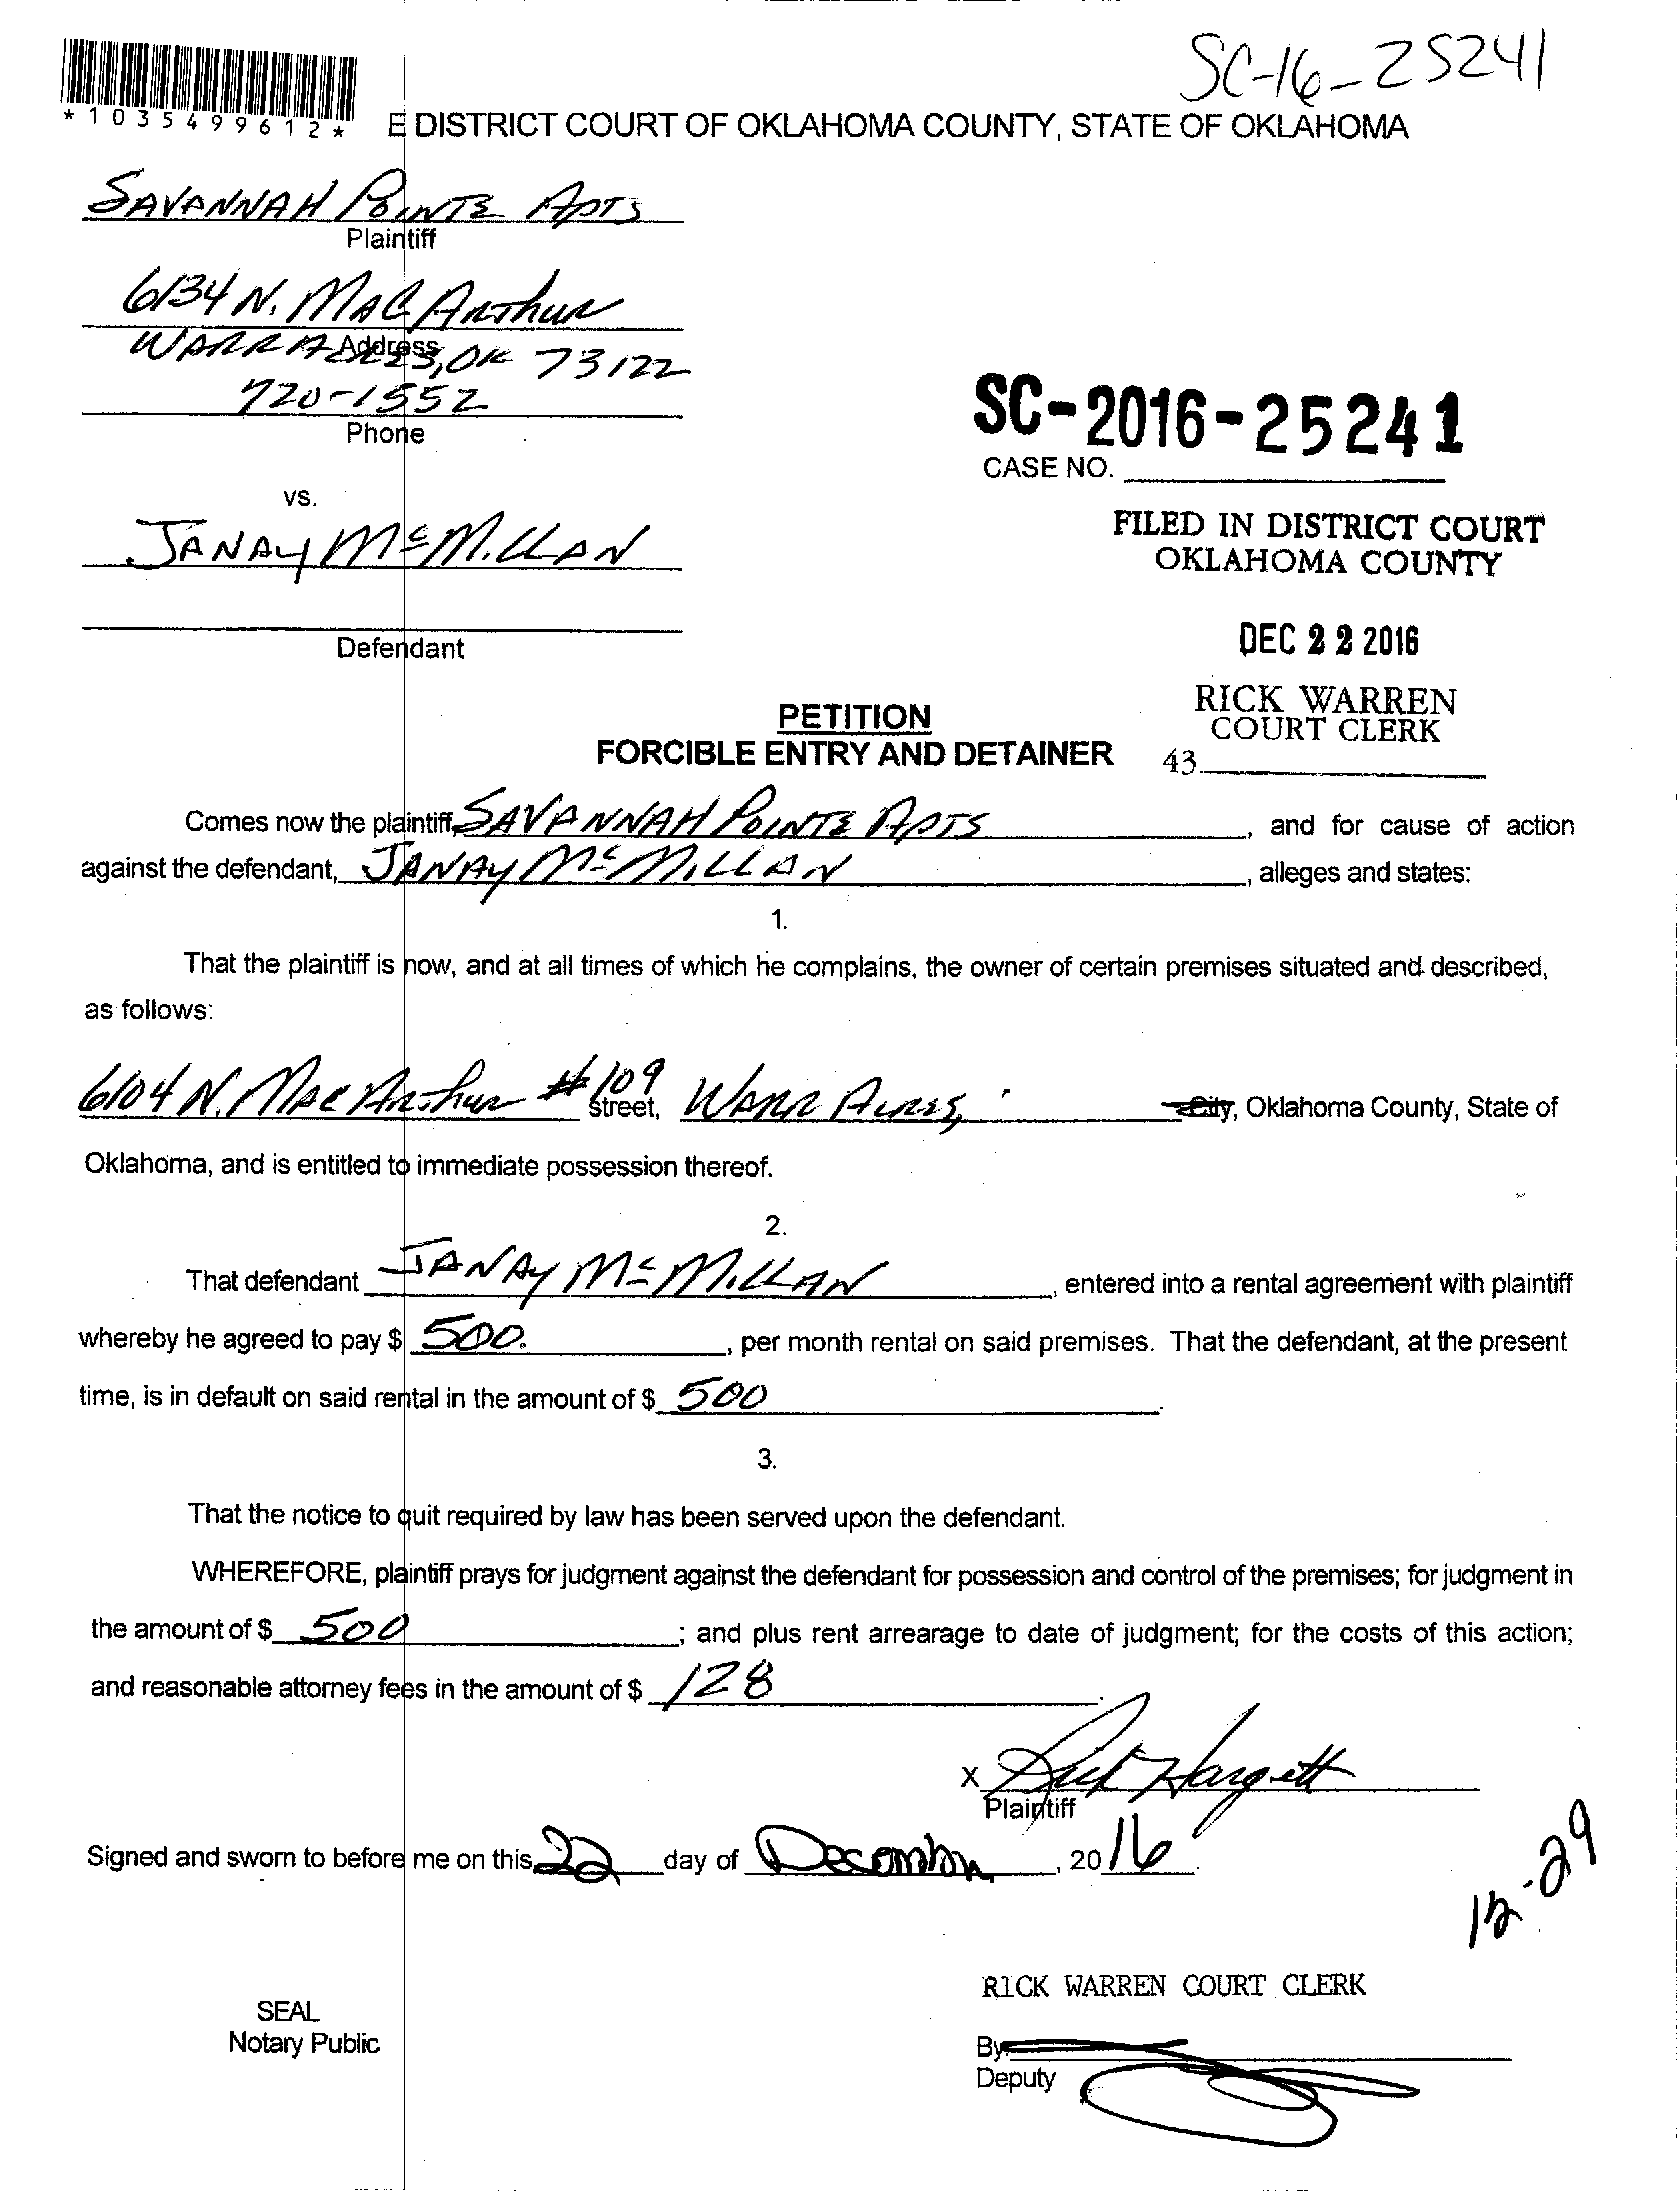 SC-16-25241
*1035499612*
E DISTRICT COURT OF OKLAHOMA COUNTY, STATE OF OKLAHOMA
SAVANNAH POINTE APTS
Plaintiff
6134 N. MACARTHUR
Address
WARR ACRES, OK 73122
720-1552
Phone
SC-2016-25241
CASE NO.
vs.
JANAY McMILLAN
Defendant
FILED IN DISTRICT COURT
OKLAHOMA COUNTY
DEC 22 2016
RICK WARREN
COURT CLERK
43
PETITION
FORCIBLE ENTRY AND DETAINER
Comes now the plaintiff, SAVANNAH POINTE APTS, and for cause of action
against the defendant, JANAY McMILLAN, alleges and states:
1.
That the plaintiff is now, and at all times of which he complains, the owner of certain premises situated and described,
as follows:
6104 N. MacArthur #109 Street, Warr Acres, City, Oklahoma County, State of
Oklahoma, and is entitled to immediate possession thereof.
2.
That defendant JANAY McMILLAN, entered into a rental agreement with plaintiff
whereby he agreed to pay $ 500. , per month rental on said premises. That the defendant, at the present
time, is in default on said rental in the amount of $ 500 .
3.
That the notice to quit required by law has been served upon the defendant.
WHEREFORE, plaintiff prays for judgment against the defendant for possession and control of the premises; for judgment in
the amount of $ 500 ; and plus rent arrearage to date of judgment; for the costs of this action;
and reasonable attorney fees in the amount of $ 128 .
X Hargett
Plaintiff
Signed and sworn to before me on this 22 day of December, 2016.
12-29
RICK WARREN COURT CLERK
SEAL
Notary Public
By
Deputy